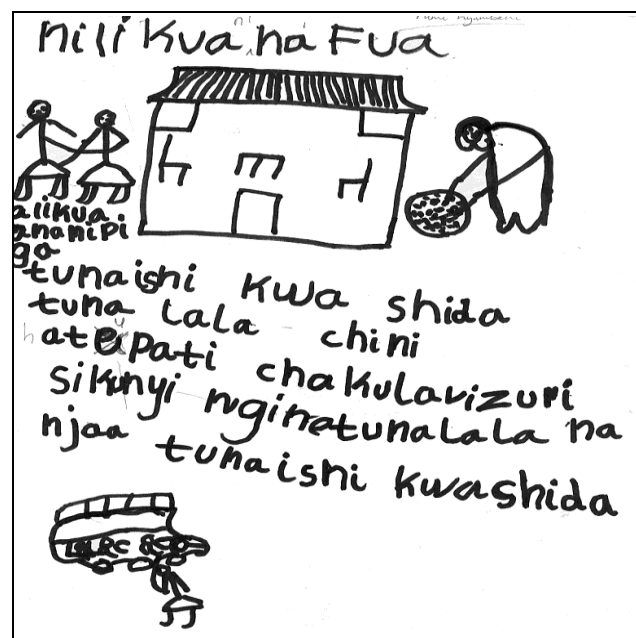 nilikua ni na Fua
alikua
ananipi
ga
tunaishi kwa shida
tuna lala chini
hatupati chakulavizuri
sikunyi nginetunalala na
njaa tunaishi kwashida